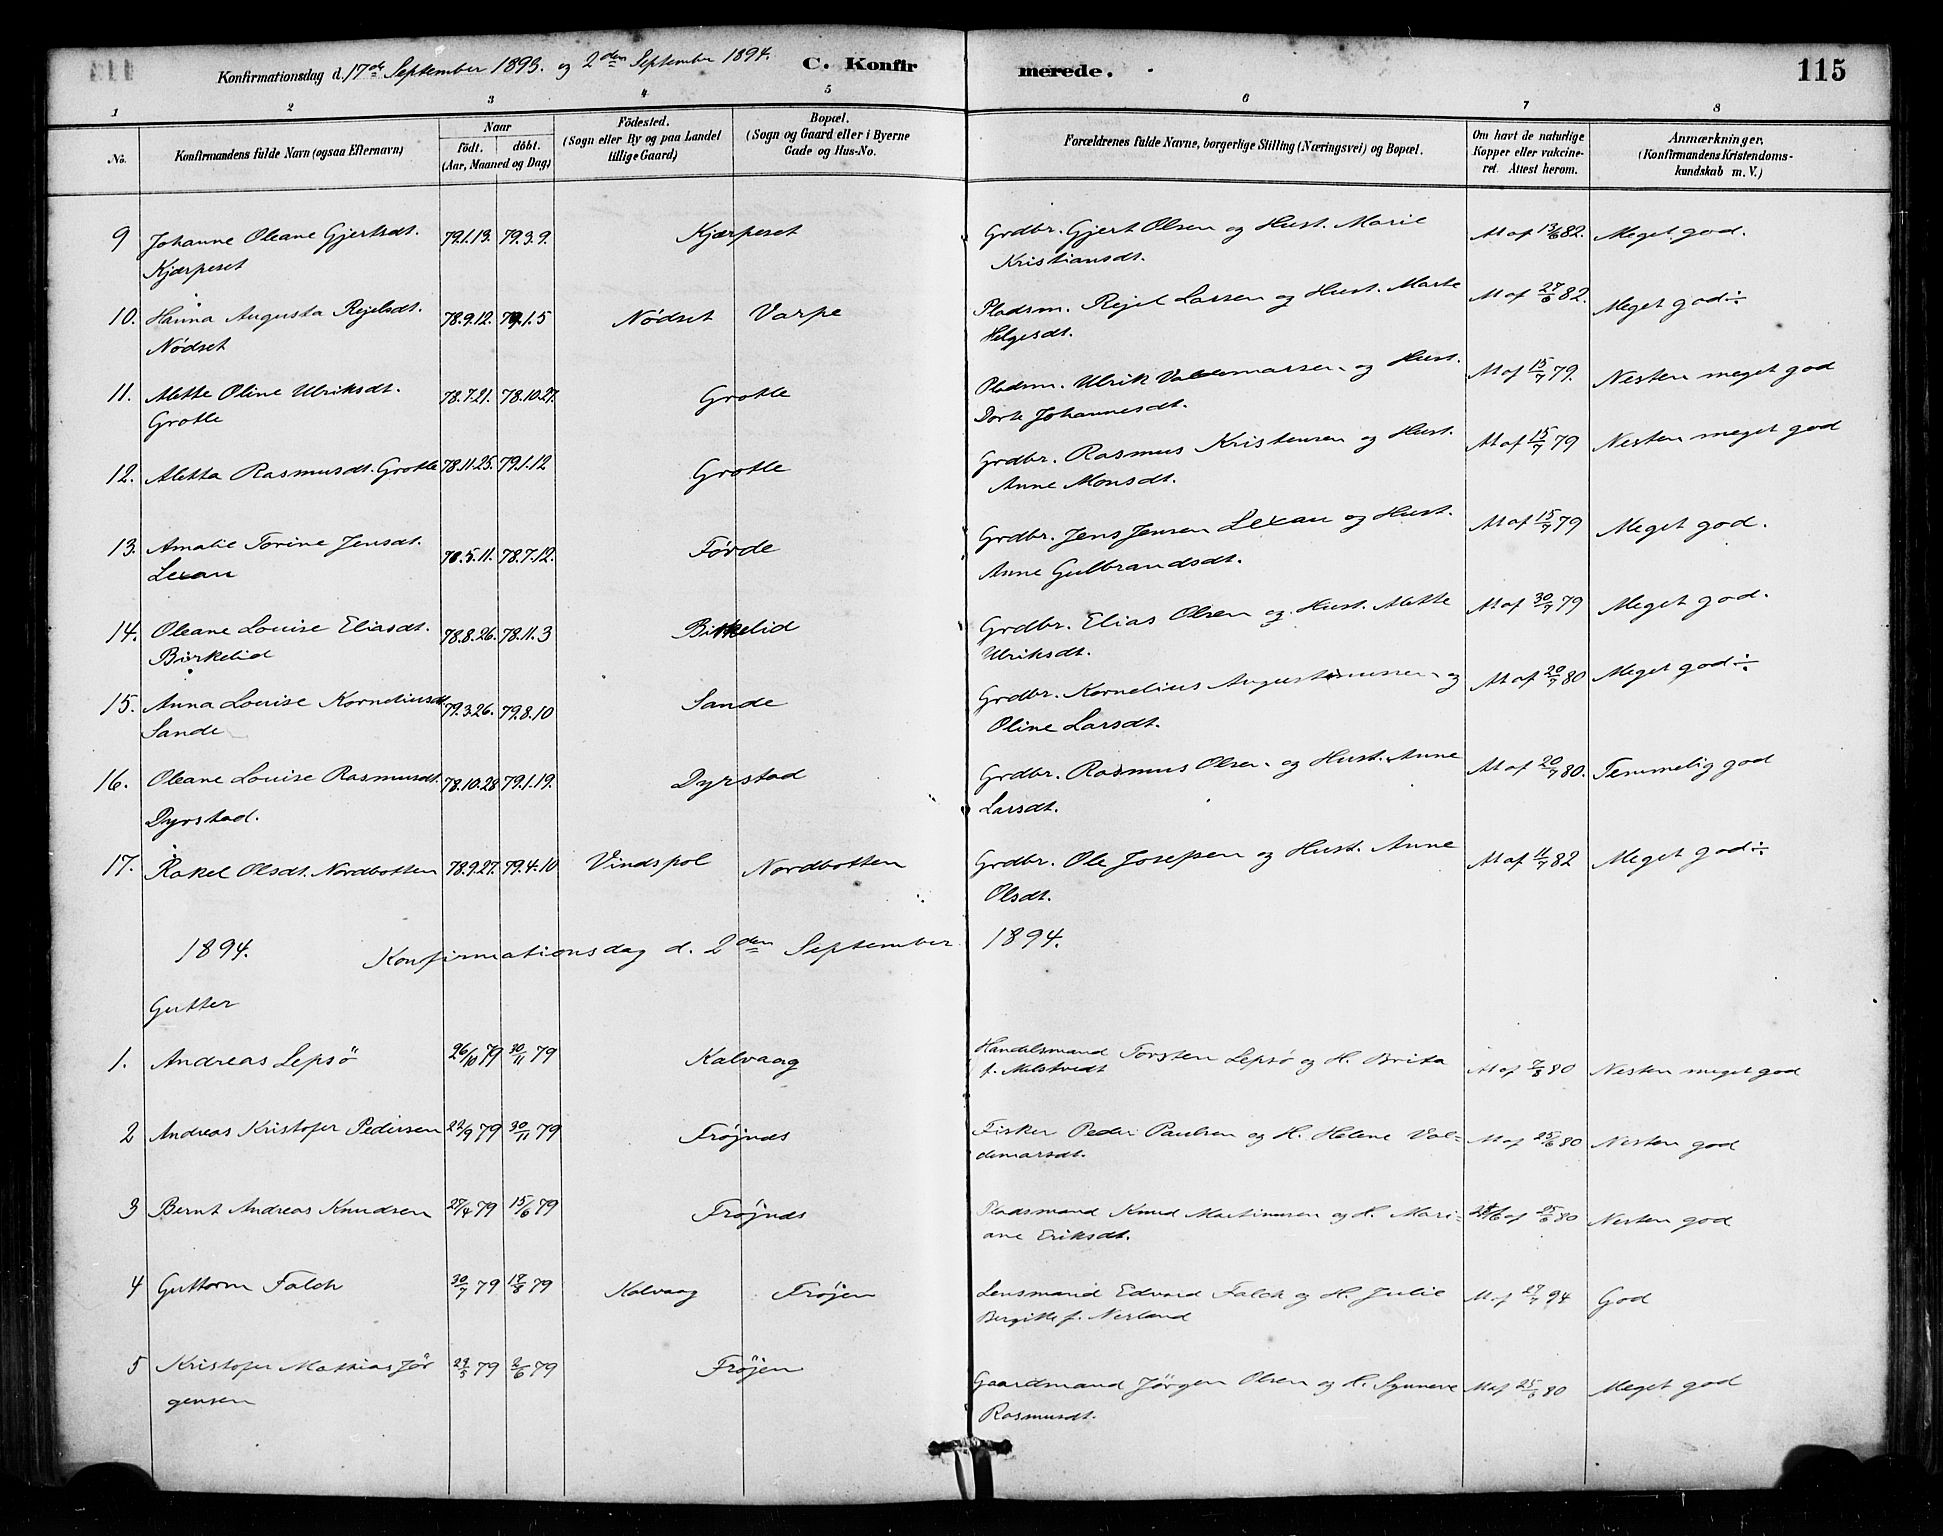 Konfirmationsdag d. 17de September 1893. og 2den September 1894. C. Konfirmerede. 115
1 2 3 4 5 6 7 8
No. Konfirmandens fulde Navn (ogsaa Efternavn) Naar født. døbt. (Aar, Maaned og Dag) Födested. (Sogn eller By og paa Landet tillige Gaard) Bopæl. (Sogn og Gaard eller i Byerne Gade og Hus-No. Forældrenes fulde Navne, borgerlige Stilling (Næringsvei) og Bopæl. Om havt de naturlige Kopper eller vakcineret. Attest herom. Anmærkninger. (Konfirmandens Kristendomskundskab m. V.)
9 Johanne Oleane Gjertsdt. 79.1.13. 79.3.9. Kjærpeset Grdbr. Gjert Olsen og Hust. Marie At af 13/6 82. Meget god.
Kjærpeset Kristiansdt.
10. Hanna Augusta Rejelsdt. 78.9.12. 79.1.5 Nödset Varpe Pladsm. Rejel Larsen og Hust. Marte At af 27/6 82. Meget god÷
Nödset Helgesdt.
11. Alette Oline Ulriksdt. 78.7.21. 78.10.27. Grotle Pladsm. Ulrik Valdemarsen og Hust. At af 15/7 79. Nesten meget god
Grotle Dorte Johannesdt.
12. Aletta Rasmusdt. Grotle 78.11.25. 79.1.12 Grotle Grdbr. Rasmus Kristensen og Hust. At af 15/7 79 Nesten meget god
Anne Monsdt.
13. Amalie Torine Jensdt. 78.5.11. 78.7.12. Förde Grdbr. Jens Jensen Lexau og Hust. At af 15/7 79 Meget god.
Lexau Anne Gulbrandsdt.
14. Oleane Louise Eliasdt. 78.8.26. 78.11.3 Birkelid Grdbr. Elias Olsen og Hust. Mette At af 30/7 79 Meget god.
Birkelid Ulriksdt.
15. Anna Louise Korneliusdt. 79.3.26. 79.8.10 Sande Grdbr. Kornelius Augustinussen og At af 20/7 80 Meget god÷
Sande Oline Larsdt.
16. Oleane Louise Rasmusdt. 78.10.28 79.1.19. Dyrstad Grdbr. Rasmus Olsen og Hust. Anne At af 20/7 80. Temmelig god
Dyrstad. Larsdt.
17. Rakel Olsdt. Nordbotten 78.9.27. 79.4.10 Vindspol Nordbotten Grdbr. Ole Josefsen og Hust. Anne At af 11/7 82 Meget god÷
Olsdt.
1894. Konfirmationsdag d. 2den September 1894.
Gutter
1. Andreas Lepsö 26/10 79 30/11 79 Kalvaag Handelsmand Torsten Lepsø og H. Brita At af 7/8 80 Nesten meget god
2 Andreas Kristofer Pedersen 22/9 79 30/11 79 Frøjnds Fisker Peder Paulsen og H. Helene Val- At af 25/6 80 Nesten god
demarsdt.
3 Bernt Andreas Knudsen 27/4 79 15/6 79 Fröjnds Pladsmand Knud Martinusen og H. Mari- At af 25/6 80 Nesten god
ane Eriksdt.
4 Guttorm Falch 30/7 79 18/8 79 Kalvaag Fröjen Lensmand Edvard Falch og H. Julie At af 27/7 94 God
Bergitte f. Nerland
5 Kristofer Mathias Jör 29/5 79 2/6 79 Fröjen Gaardmand Jörgen Olsen og H. Synneve At af 25/6 80 Meget god
gensen Rasmusdt.